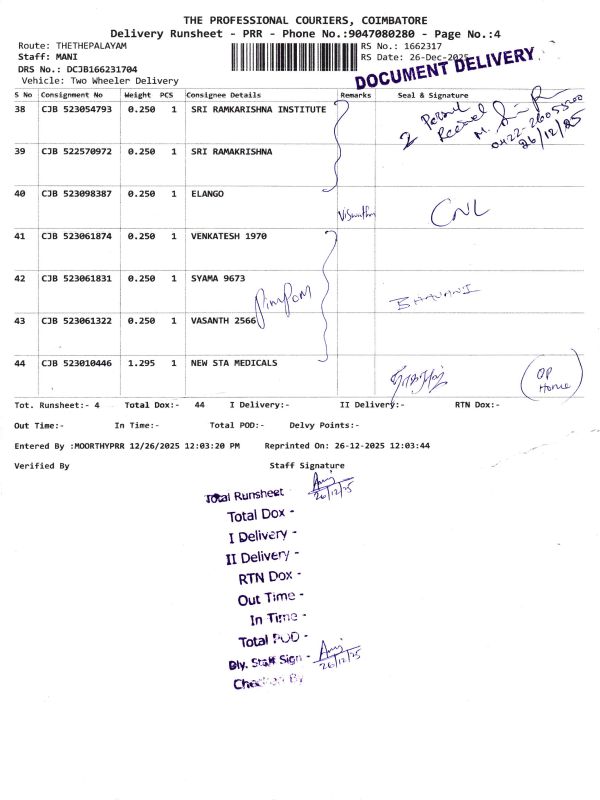 THE PROFESSIONAL COURIERS, COIMBATORE
Delivery Runsheet - PRR - Phone No.:9047080280 - Page No.:4
Route: THETHEPALAYAM
RS No.: 1662317
Staff: MANI
RS Date: 26-Dec-2025
DRS No.: DCJB166231704
DOCUMENT DELIVERY
Vehicle: Two Wheeler Delivery
S No Consignment No Weight PCS Consignee Details Remarks Seal & Signature
38 CJB 523054793 0.250 1 SRI RAMKARISHNA INSTITUTE
2
0422-2605500
26/12/25
39 CJB 522570972 0.250 1 SRI RAMAKRISHNA
40 CJB 523098387 0.250 1 ELANGO
CNL
41 CJB 523061874 0.250 1 VENKATESH 1970
42 CJB 523061831 0.250 1 SYAMA 9673
BHAVANI
43 CJB 523061322 0.250 1 VASANTH 2566
44 CJB 523010446 1.295 1 NEW STA MEDICALS
OP
Home
Tot. Runsheet:- 4 Total Dox:- 44 I Delivery:- II Delivery:- RTN Dox:-
Out Time:- In Time:- Total POD:- Delvy Points:-
Entered By :MOORTHYPRR 12/26/2025 12:03:20 PM Reprinted On: 26-12-2025 12:03:44
Verified By Staff Signature
Total Runsheet
26/12/25
Total Dox -
I Delivery -
II Delivery -
RTN Dox -
Out Time -
In Time -
Total POD -
Dly. Staff Sign -
26/12/25
Checked By